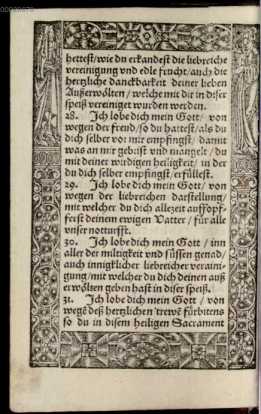 hettest/wie du erkandest die liebreiche
vereinigung vnd edle frucht/auch die
hertzliche danckbarkeit deiner lieben
Außerwölten/welche mit dir in diser
speiß vereiniget wurden werden.
28. Ich lobe dich mein Gott/ von
wegen der freud/so du hattest/als du
dich selber vor mir empfingst/ damit
was an mir gebrist vnd mangelt/du
mit deiner wirdigen heiligkeit/ in der
du dich selber empfingst/erfüllest.
29. Ich lobe dich mein Gott/ von
wegen der lieblichen darstellung/
mit welcher du dich allezeit auffopf-
ferst deinem ewigen Vatter/ für alle
vnser notturfft.
30. Ich lobe dich mein Gott/ inn
aller der miltigkeit vnd süssen genad/
auch inniglicher liebreicher veraini-
gung/mit welcher du dich deinen auß
erwölten geben hast in diser speiß.
31. Ich lobe dich mein Gott/ von
wegē deß hertzlichen trewē fürbittens
so du in disem heiligen Sacrament